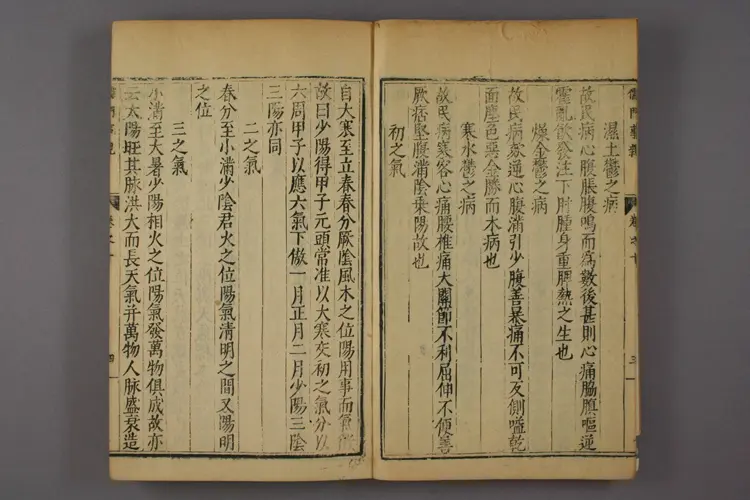 濕土鬱之病
故民病心腹脹腹鳴而為數後甚則心痛脇䐜嘔逆
霍亂飲發注下胕腫身重脾熱之生也
燥金鬱之病
故民病欬逆心腹滿引少腹善暴痛不可反側嗌乾
面塵色惡金勝而木病也
寒水鬱之病
故民病寒客心痛腰椎痛大關節不利屈伸不便善
厥痞堅腹滿陰乗陽故也
初之氣
儒門事親
卷之十
三
自大寒至立春春分厥陰風木之位陽用事而氣
故曰少陽得甲子元頭常准以大寒交初之氣分以
六周甲子以應六氣下傚一月正月二月少陽三陰
三陽亦同
二之氣
春分至小滿少陰君火之位陽氣清明之間又陽明
之位
三之氣
小滿至大暑少陽相火之位陽氣發萬物俱成故亦
云太陽旺其脉洪大而長天氣并萬物人脉盛衰造
卷之十
四